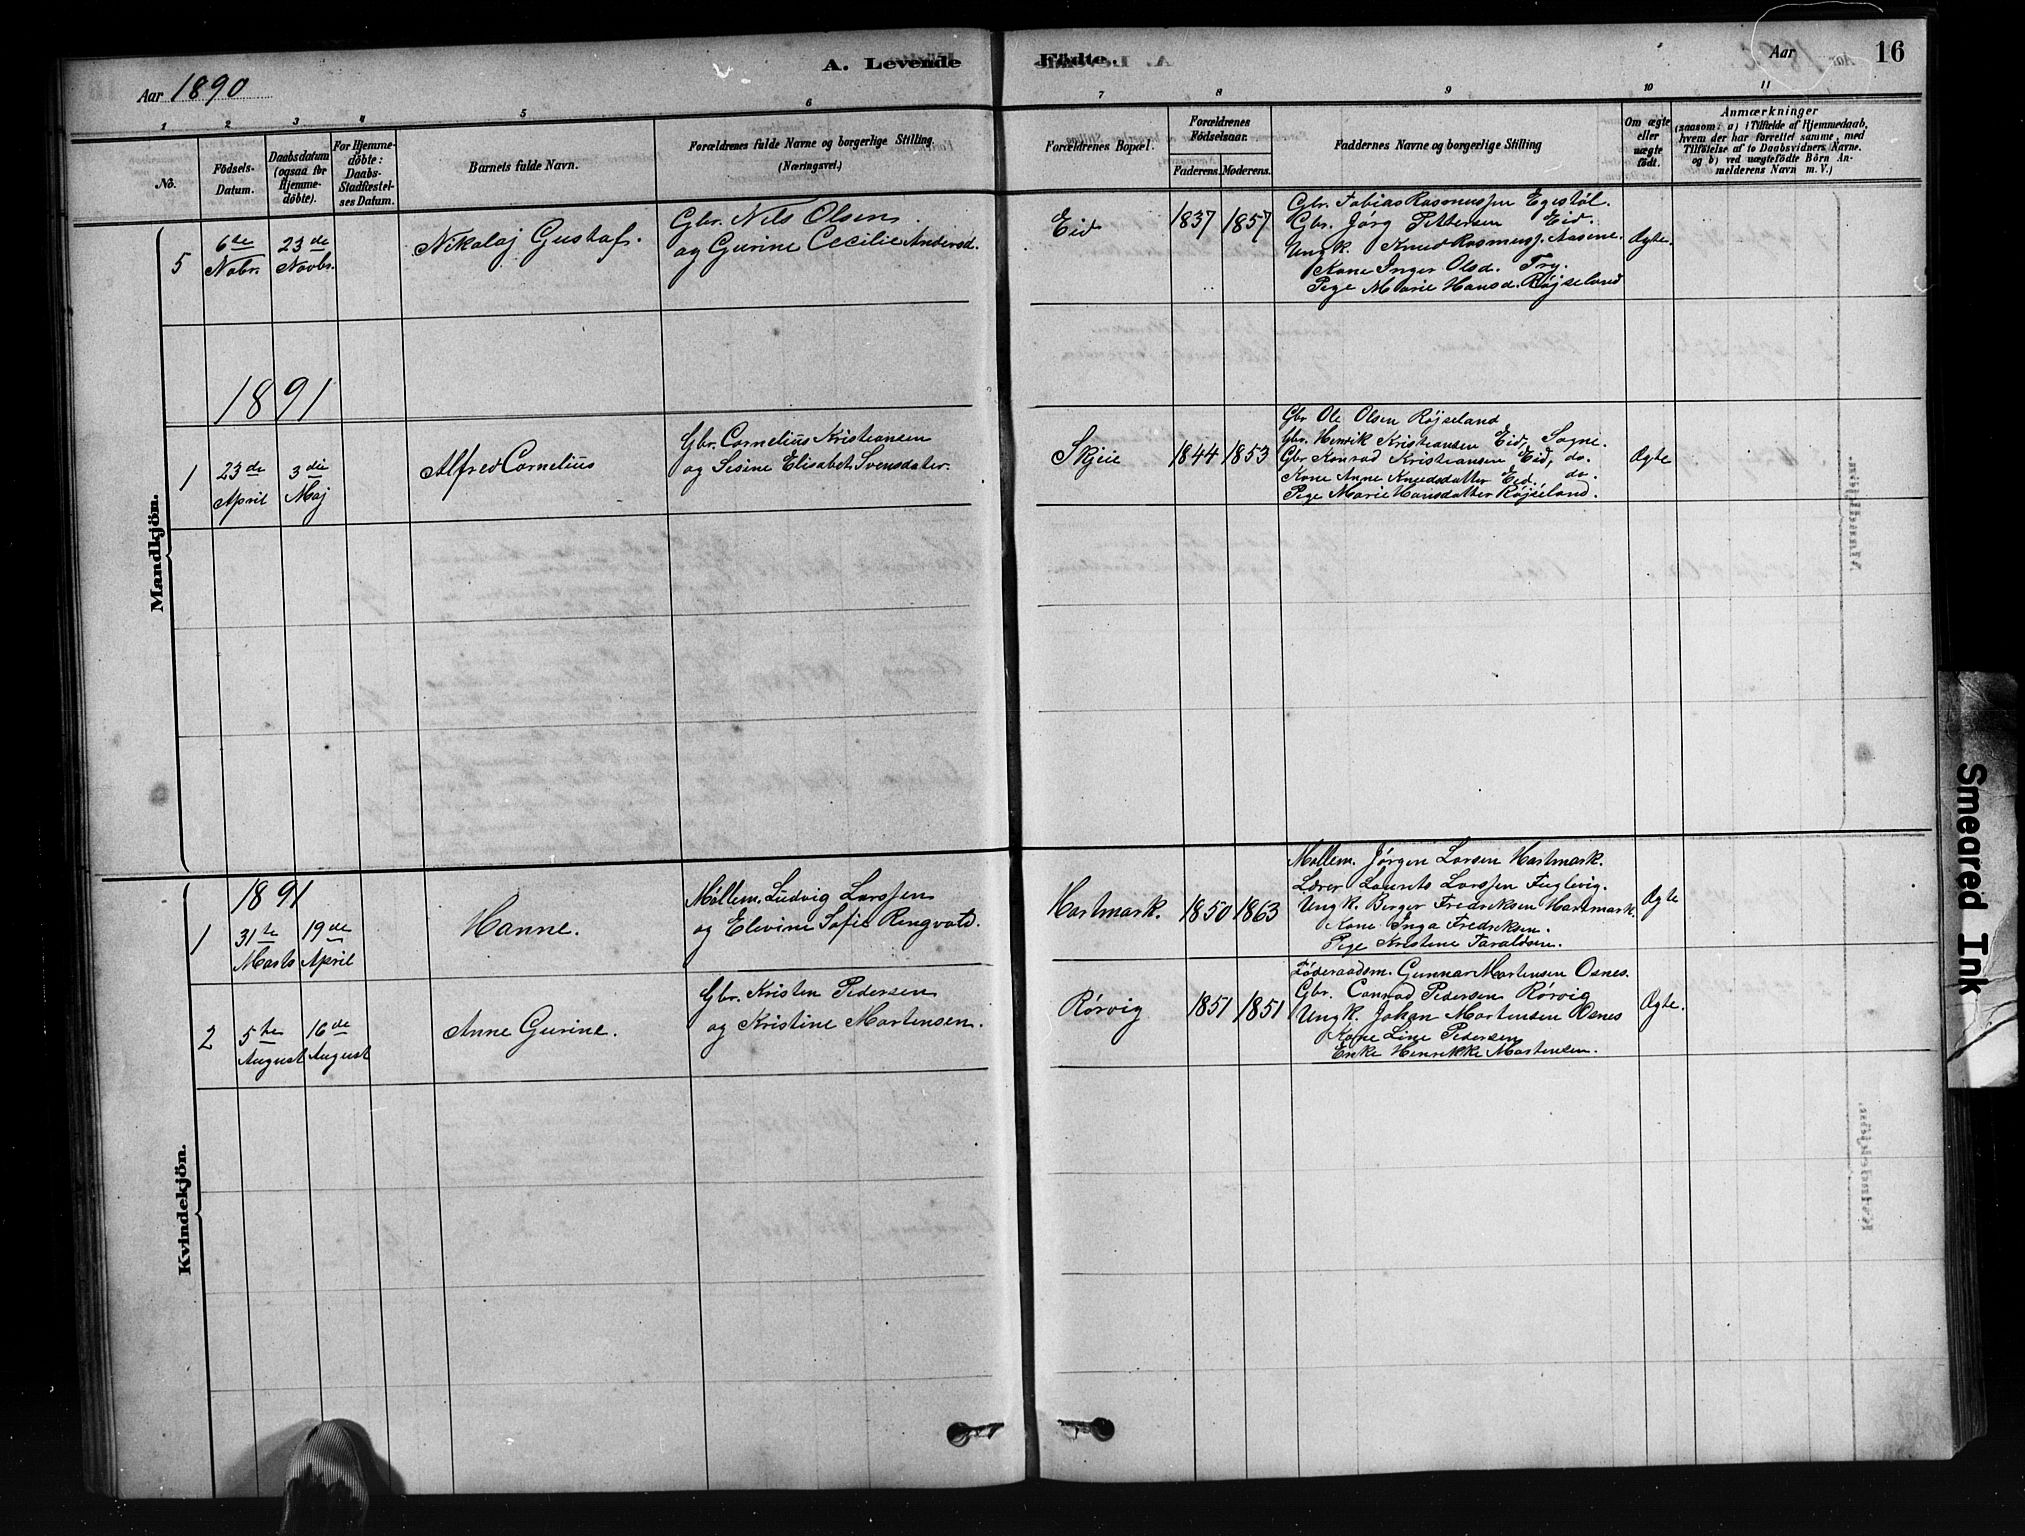 A. Levende Födte.
Aar 1890
Aar
16
1 2 3 4 5 6 7 8 9 10 11
No.
Födsels-Datum.
Daabsdatum (ogsaa for Hjemmedöbte).
For Hjemmedöbte: Daabs-Stadfæstelses Datum.
Barnets fulde Navn.
Forældrenes fulde Navne og borgerlige Stilling (Næringsvei.)
Forældrenes Bopæl.
Forældrenes Födselsaar.
Faderens. Moderens.
Faddernes Navne og borgerlige Stilling
Om ægte eller uægte født.
Anmærkninger
(saasom: a) i Tilfælde af Hjemmedaab, hvem der har forrettet samme, med Tilföielse af to Daabsvidners Navne. og b) ved uægtefödte Börn Anmelderens Navn m. V.)
Mandkjön.
5
6te Nobr.
23de Novbr.
Nikolaj Gustaf.
Gbr. Nils Olsen
og Gurine Cecilie Andersd.
Eid
1837 1857
Gbr. Tobias Rasmussen Egestøl.
Gbr. Jørg Pettersen Eid.
Ungk. Knud Rasmuss. Aasene.
Kone Inger Olsd. Try.
Pige Marie Hansd. Røjseland
Ægte.
1891
1
23de April
3die Maj
Alfred Cornelius
Gbr. Cornelius Kristiansen
og Sisine Elisabet Svensdater.
Skjeie
1844 1853
Gbr Ole Olsen Røjseland
Gbr. Henrik Kristiansen Eid, Sogne.
Gbr Konrad Kristiansen Eid, do.
Kone Anne Knudsdatter Eid. do.
Pige Marie Hansdatter Røjseland.
Ægte
Kvindekjön.
1891
1
31te Marts
19de April
Hanne.
Møllem. Ludvig Larssen
og Elevine Sofie Ringvold.
Hartmark.
1850 1863
Møllem. Jørgen Larsen Hartmark.
Lærer Laurits Larssen Fuglevig.
Ungk. Berger Fredriksen Hartmark.
Kone Inga Fredriksen.
Pige Kristine Taraldsen.
Ægte
2
5te August
16de August
Anne Gurine.
Gbr. Kristen Pedersen
og Kristine Mortensen.
Rørvig
1851 1851
Føderaadsm. Gunnar Mortensen Osnes.
Gbr. Conrad Pedersen Rørvig
Ungk. Johan Mortensen Osnes
Kone Line Pedersen
Enke Henrikke Mortensen.
Ægte.
Smeared Ink